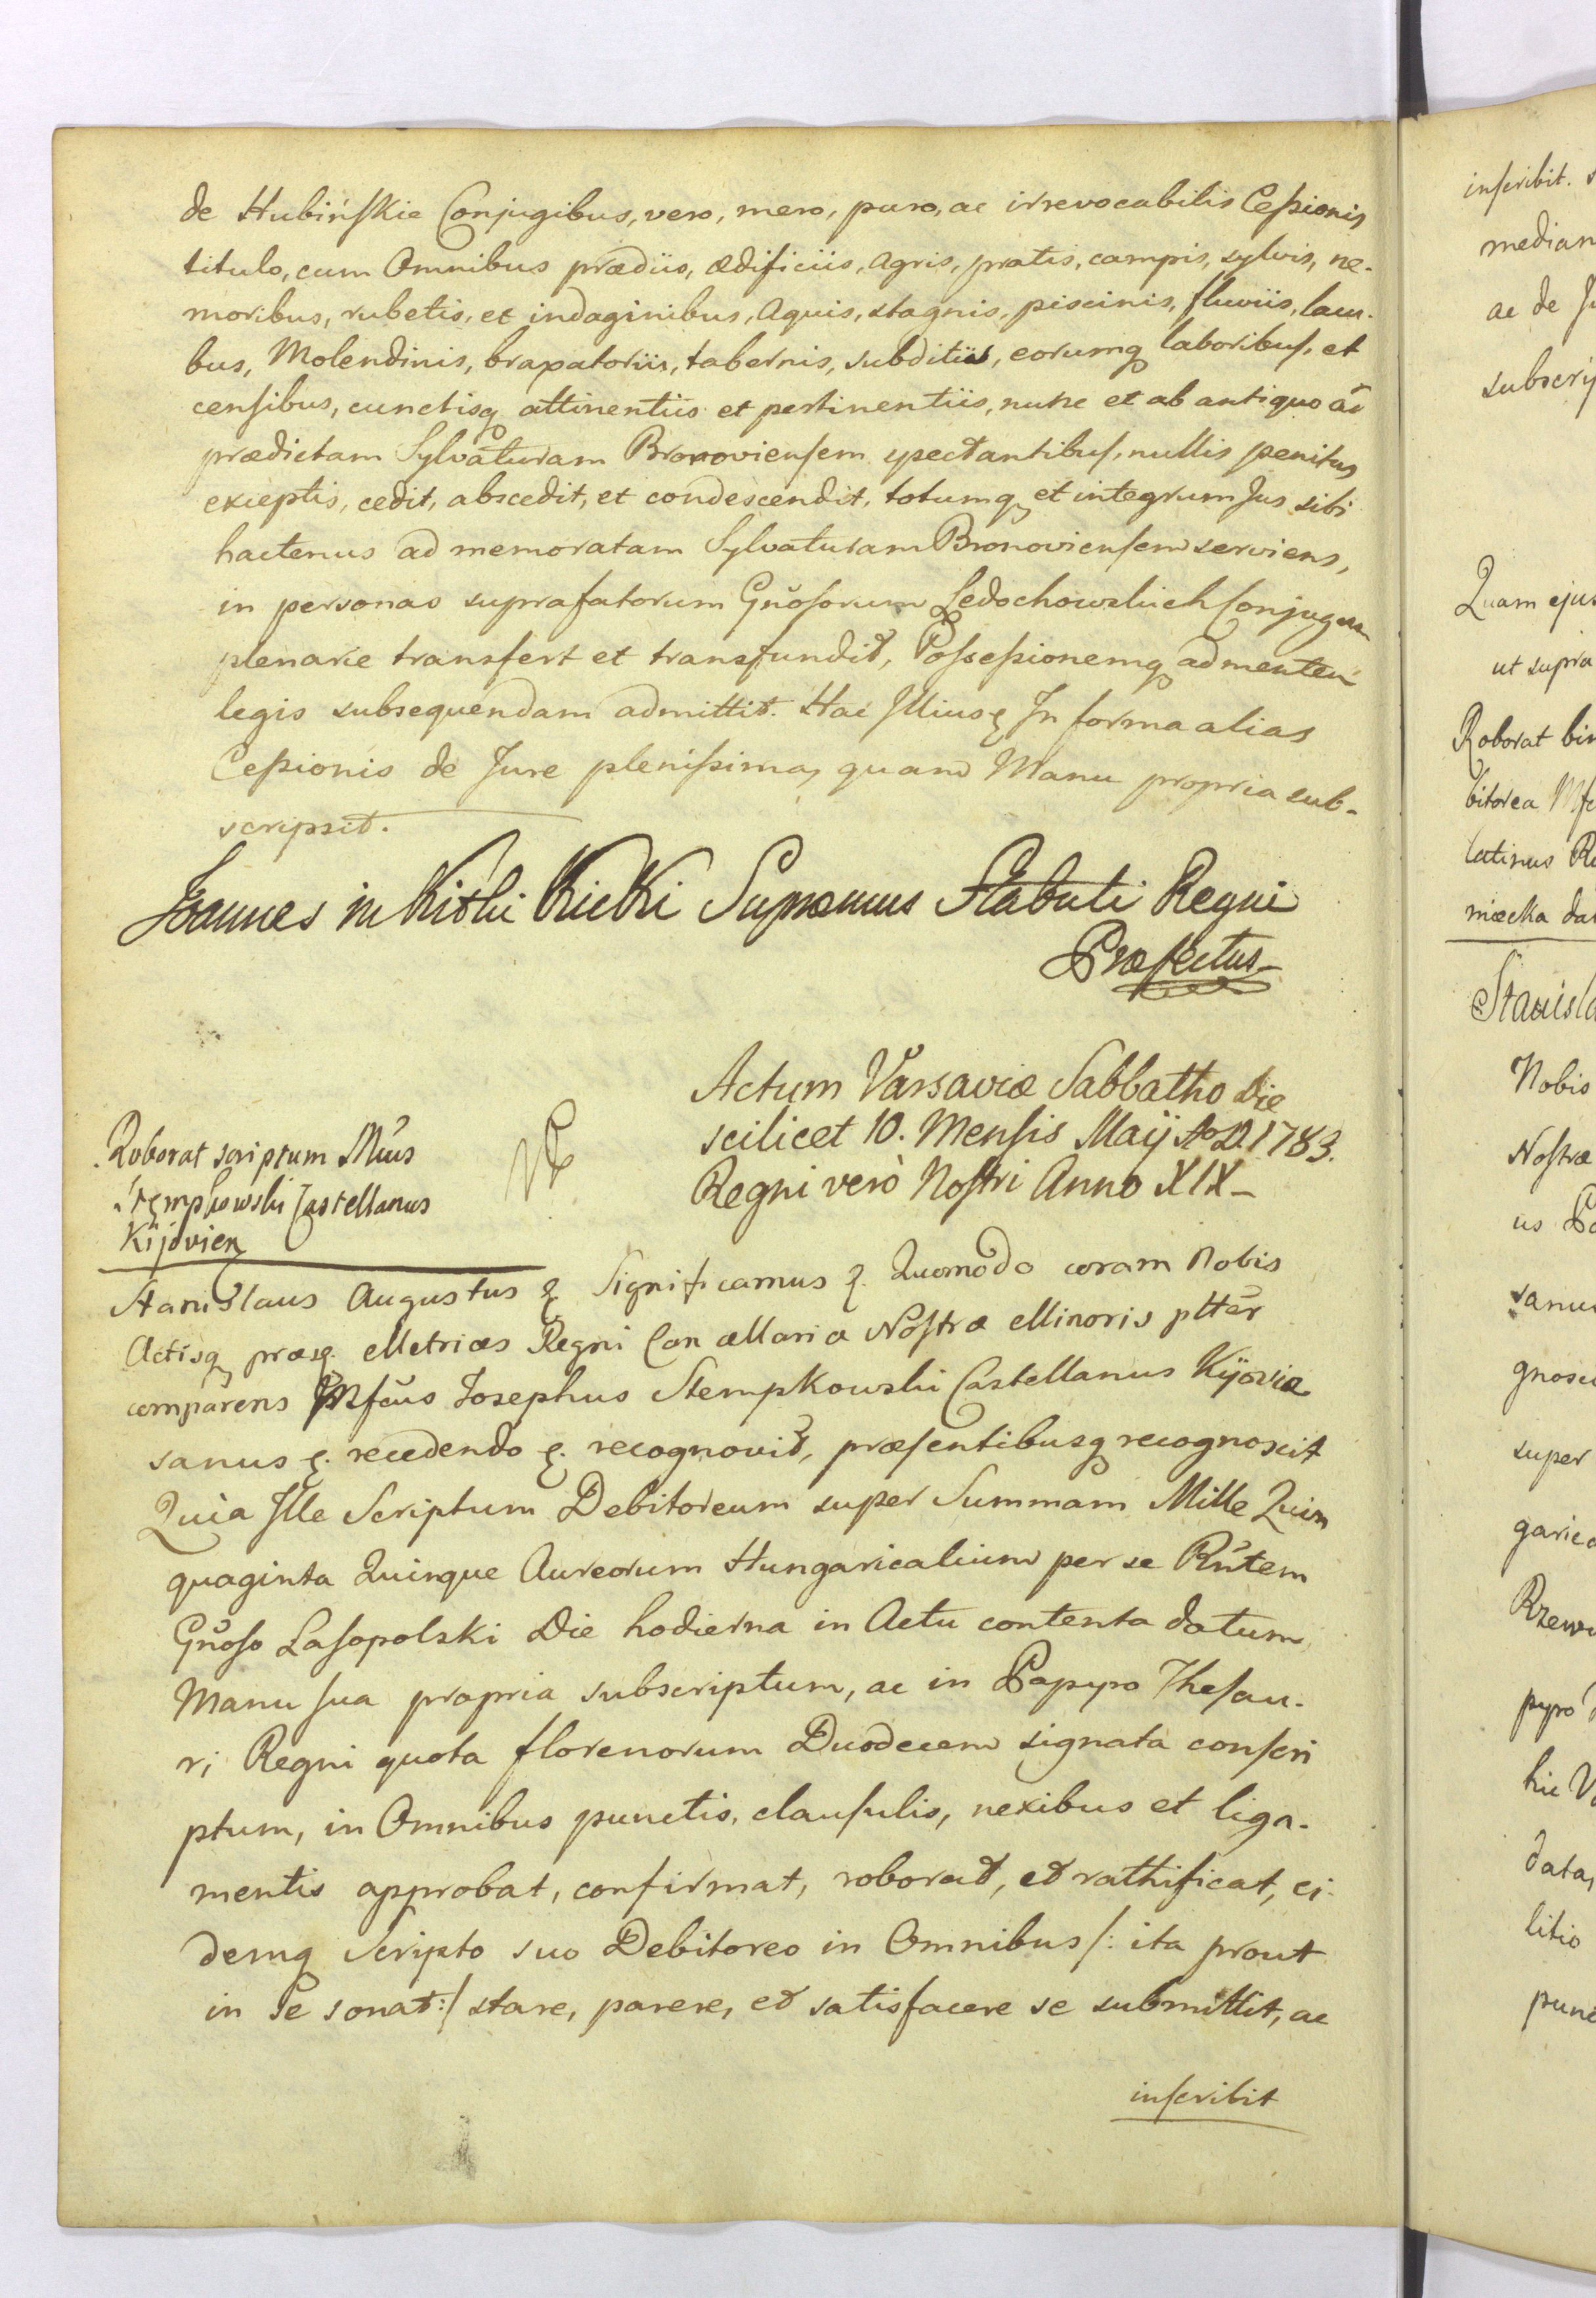 de Hubińskie Conjugibus, vero, mero, puro, ac irrevocabilis Cessionis
titulo, cum Omnibus prædiis, ædificiis, agris, pratis, campis, sylvis, ne-
moribus, rubetis, et indaginibus, Aquis, stagnis, piscinis, fluviis, lacu-
bus, Molendinis, braxatoriis, tabernis, subditiis, eorumq laboribus, et
censibus, cunctisq attinentiis et pertinentiis, nunc et ab antiquo ad
prædictam Sylvaturam Bronoviensem spectantibus, nullis penitus
exceptis, cedit, abscedit, et condescendit, totumq et integrum Jus sibi
hactenus ad memoratam Sylvaturam Bronoviensem serviens,
in personas suprafatorum Gñosorum Ledochowskich Conjugum
plenarie transfert et transfundit, Possessionemq ad mentem
legis subsequendam admittit. Hac Illius In forma alias
Cessionis de Jure plenissima, quam Manu propria sub-
scripsit.
Joannes in Kitki Kicki Supremus Stabuli Regni
Præfectus
Actum Varsaviæ Sabbatho Die
scilicet 10. Mensis Maij Ao D. 1783.
Regni verò Nostri Anno XIX
Roborat scriptum Mcus
Stempkowski Castellanus
Kijovien
Stanislaus Augustus & Significamus &. Quomodo coram Nobis
Actisq præs. Metrices Regni Cancellariæ Nostræ Minoris pltter
comparens Mfcus Josephus Stempkowski Castellanus Kijoviæ
sanus &. recedendo &. recognovit, præsentibusq recognoscit
Quia Ille Scriptum Debitoreum super Summam Mille Quin
quaginta Quinque Aureorum Hungaricalium per se Rñtem
Gñoso Lasopolski Die hodierna in Actu contenta datum
Manu sua propria subscriptum, ac in Papyro Thesau-
ri Regni quota florenorum Duodecem signata conscri
ptum, in Omnibus punctis, clausulis, nexibus et liga-
mentis approbat, confirmat, roborat, et rathificat, ei-
demq Scripto suo Debitoreo in Omnibus /: ita prout
in Se sonat :/ stare, parere, et satisfacere se submittit, ac
inscribit
inscribit.
median
ac de Ju
subscrip
Quam ejus
ut supra
Roborat
bitorea
latinus
miecka
Stanisla
Nobis
Nostræ
us
sanus
gnosci
super
garica
Rzewu
pyro
hic
data,
litio
punc